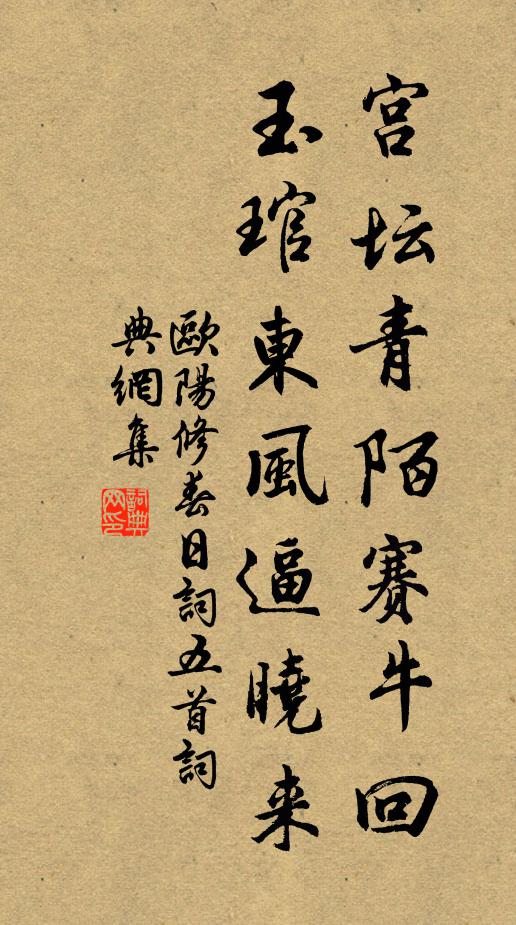 宫坛青陌赛牛回
玉琯東風逼曉来
歐陽修春日詞五首詞
典網集
詞典网印